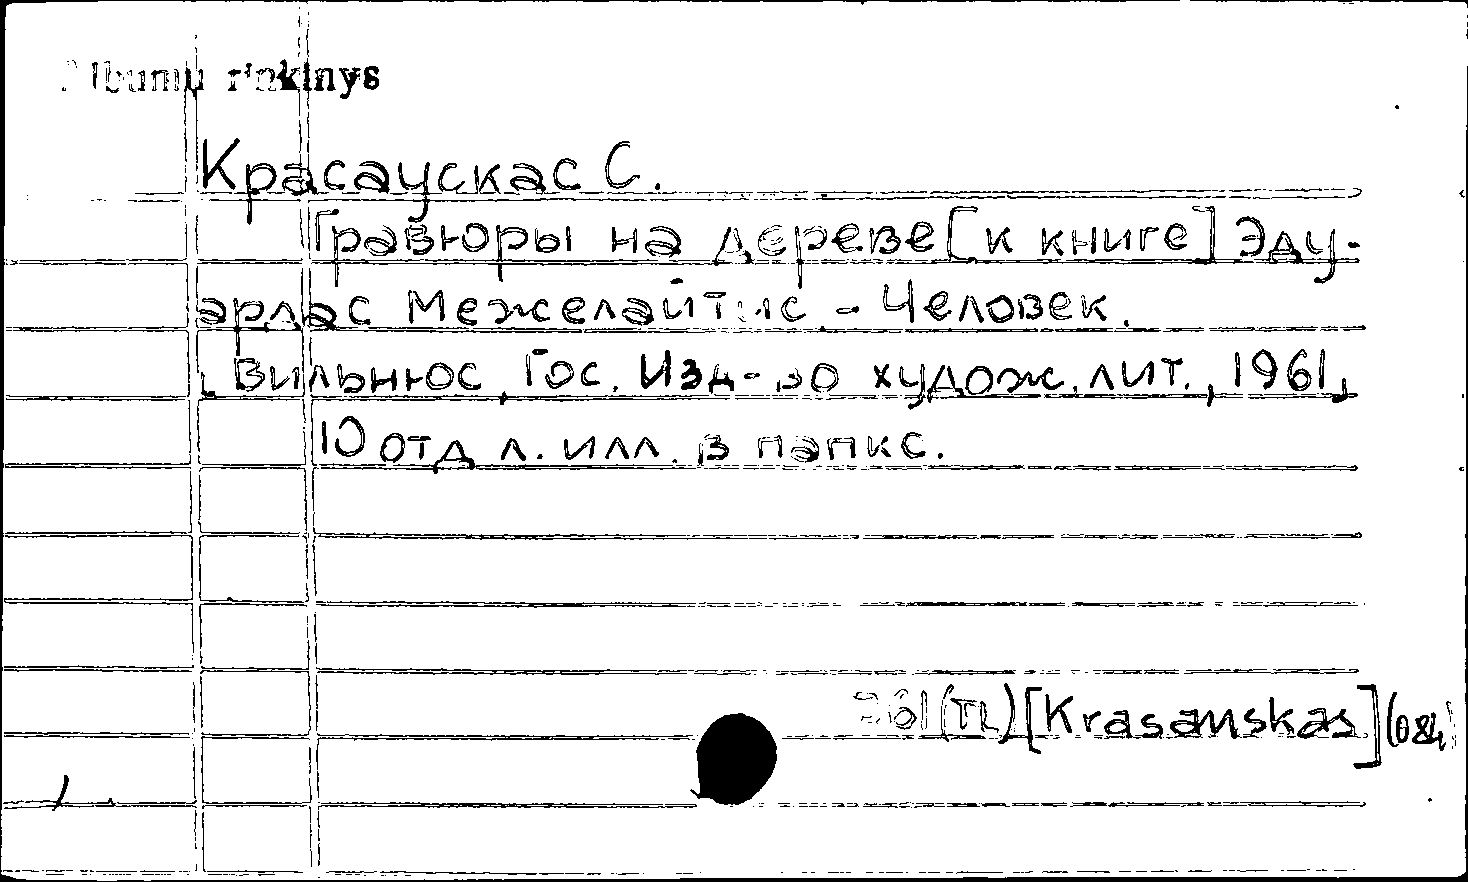 Albumų rinkinys
Красаускас С.
Гравюры на дереве [к книге] Эду-
ардас Межелайтис - Человек.
[Вильнюс, Гос. Изд-во худож. лит., 1961]
10 отд л. илл. в папке.
[Krasauskas] (084)